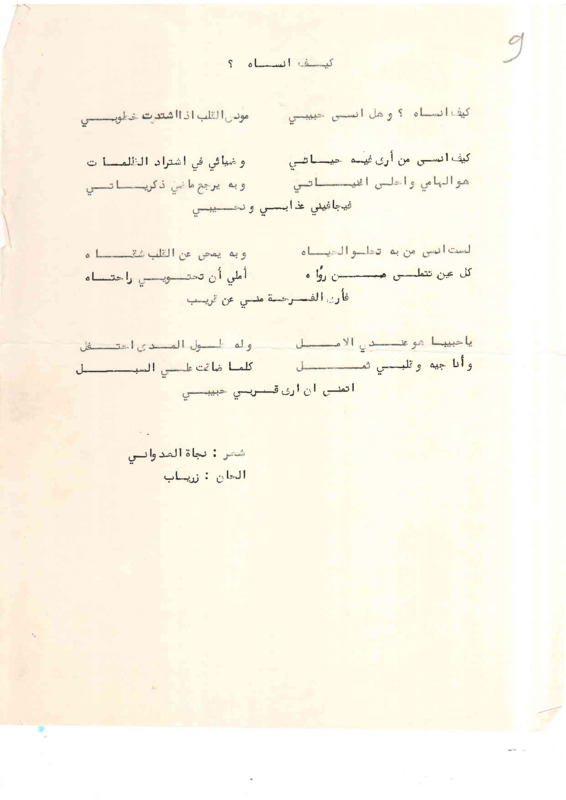 9
كيف انساه ؟
كيف انساه ؟ وهل انسى حبيبي مونس القلب اذا اشتدت خطوبي
كيف انسى من أرى فيه حياتي وضيائي في اشتداد الظلمات
هو الهامي واحلى اغنياتي وبه يرجع ماضي ذكرياتي
فيجافيني عذابي ونحيبي
لست انسى من به تحلو الحياه وبه يمحى عن القلب شقاه
كل عين تتملى من رؤاه أملي أن تحتويني راحتاه
فأرى الفرحة مني عن قريب
ياحبيبا هو عندي الامل وله طول المدى احتفل
وأناجيه وقلبي ثمل كلما ضاقت علي السبل
اتمنى ان ارى قربي حبيبي
شعر : نجاة العدواني
الحان : زرياب